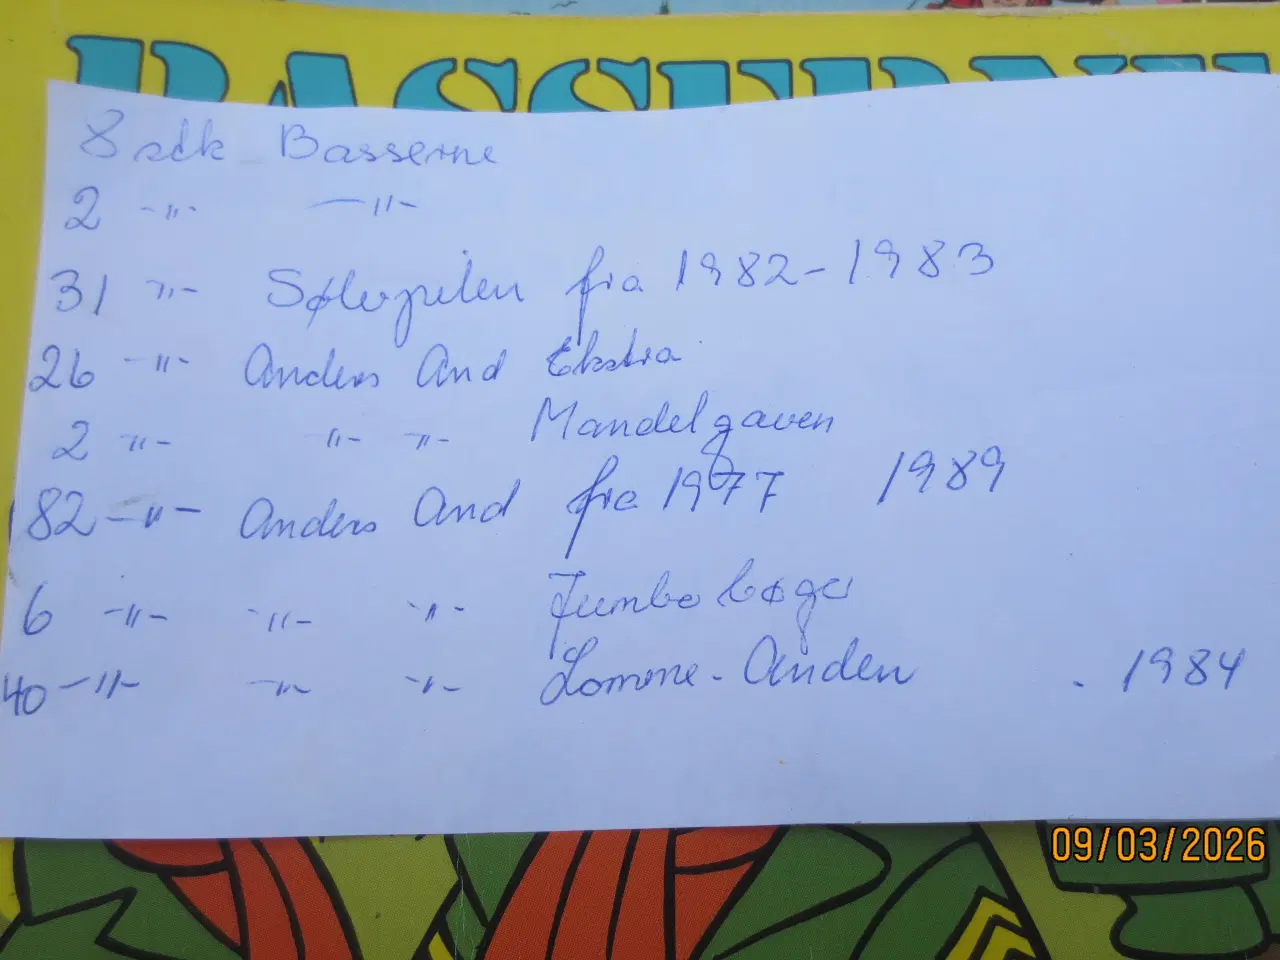 BASSERNE
8 stk Basserne
2 -"- -"-
31 "- Sølvpilen fra 1982-1983
26 -"- Anders And Ekstra
2 -"- -"- -"- Mandelgaven
82 -"- Anders And fra 1977 1989
6 -"- -"- -"- Jumbo bøger
40 -"- -"- -"- Lomme-Anden . 1984
09/03/2026